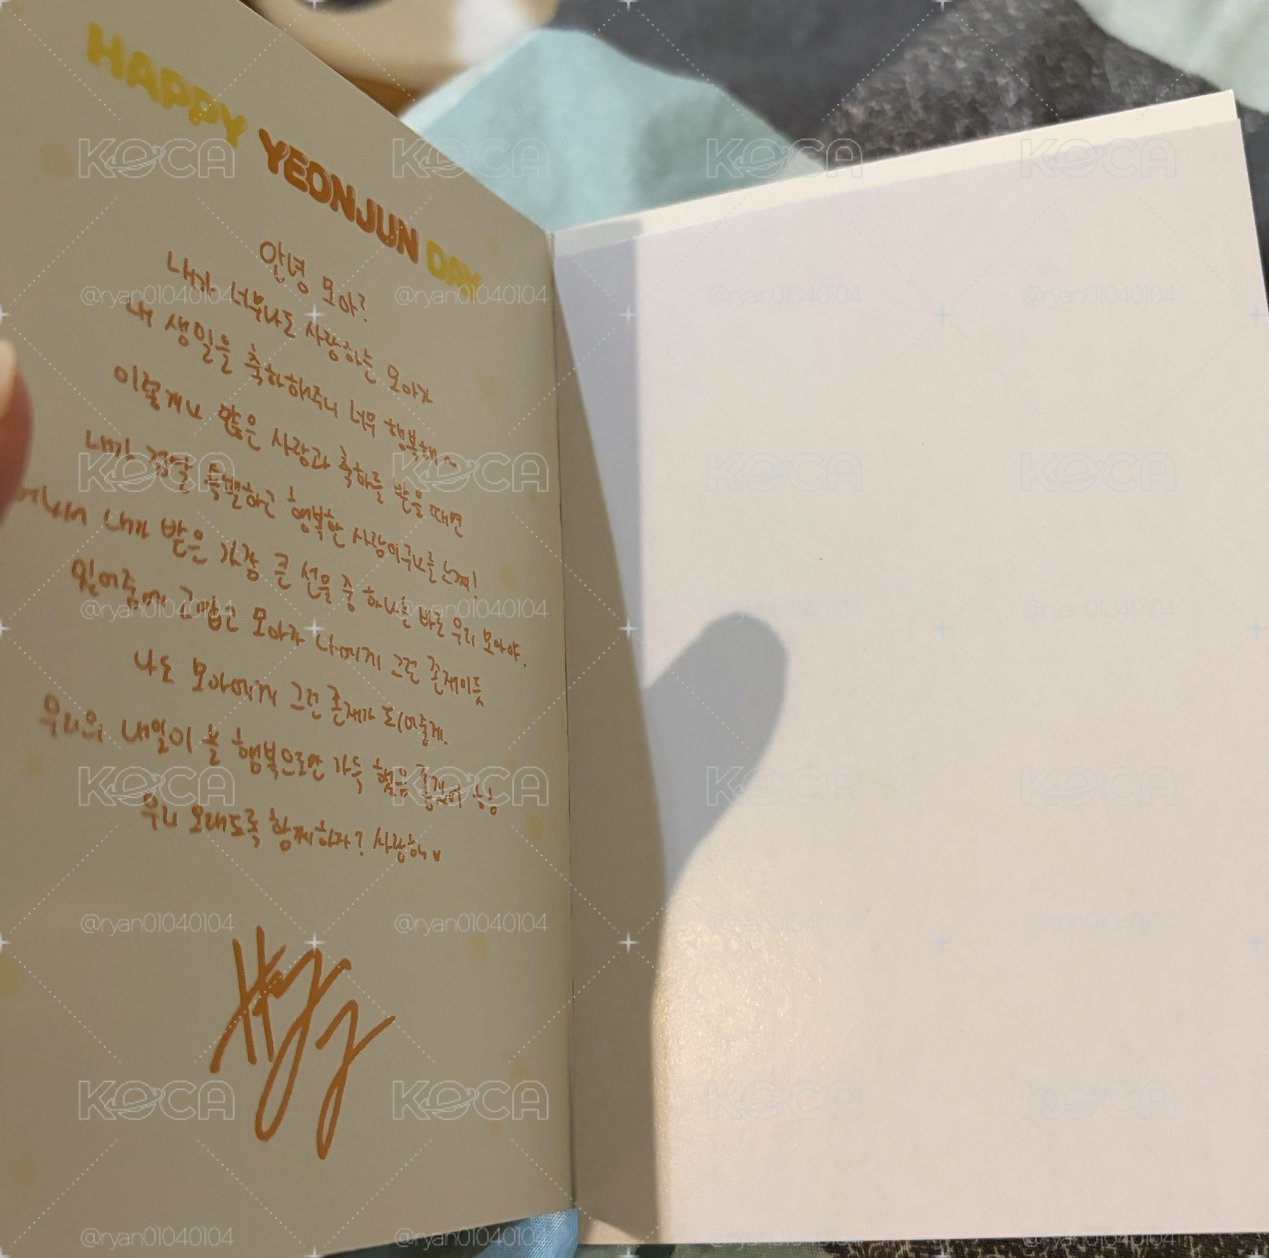 HAPPY YEONJUN DAY
안녕 모아?
내가 너무나도 사랑하는 모아가
내 생일을 축하해주니 너무 행복해~
이렇게나 많은 사랑과 축하를 받을 때면
내가 정말 특별하고 행복한 사람이구나를 느껴!
내가 받은 가장 큰 선물 중 하나는 바로 우리 모아야.
있어줌에 고맙고 모아가 나에게 그런 존재이듯
나도 모아에게 그런 존재가 되어줄게.
우리의 내일이 늘 행복으로만 가득 했음 좋겠어
우리 오래도록 함께하자? 사랑해♥
KOCA
@ryan01040104